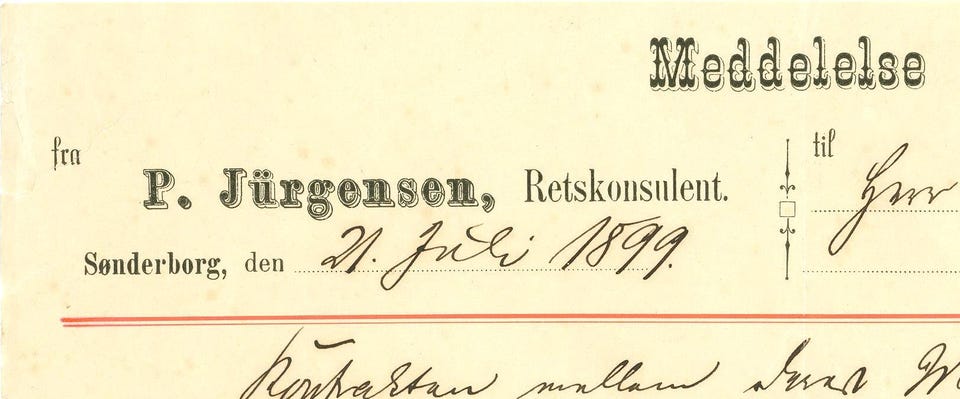 Meddelelse
fra
til
P. Jürgensen, Retskonsulent.
Herr
Sønderborg, den 21. Juli 1899.
Kontrakten mellem deres